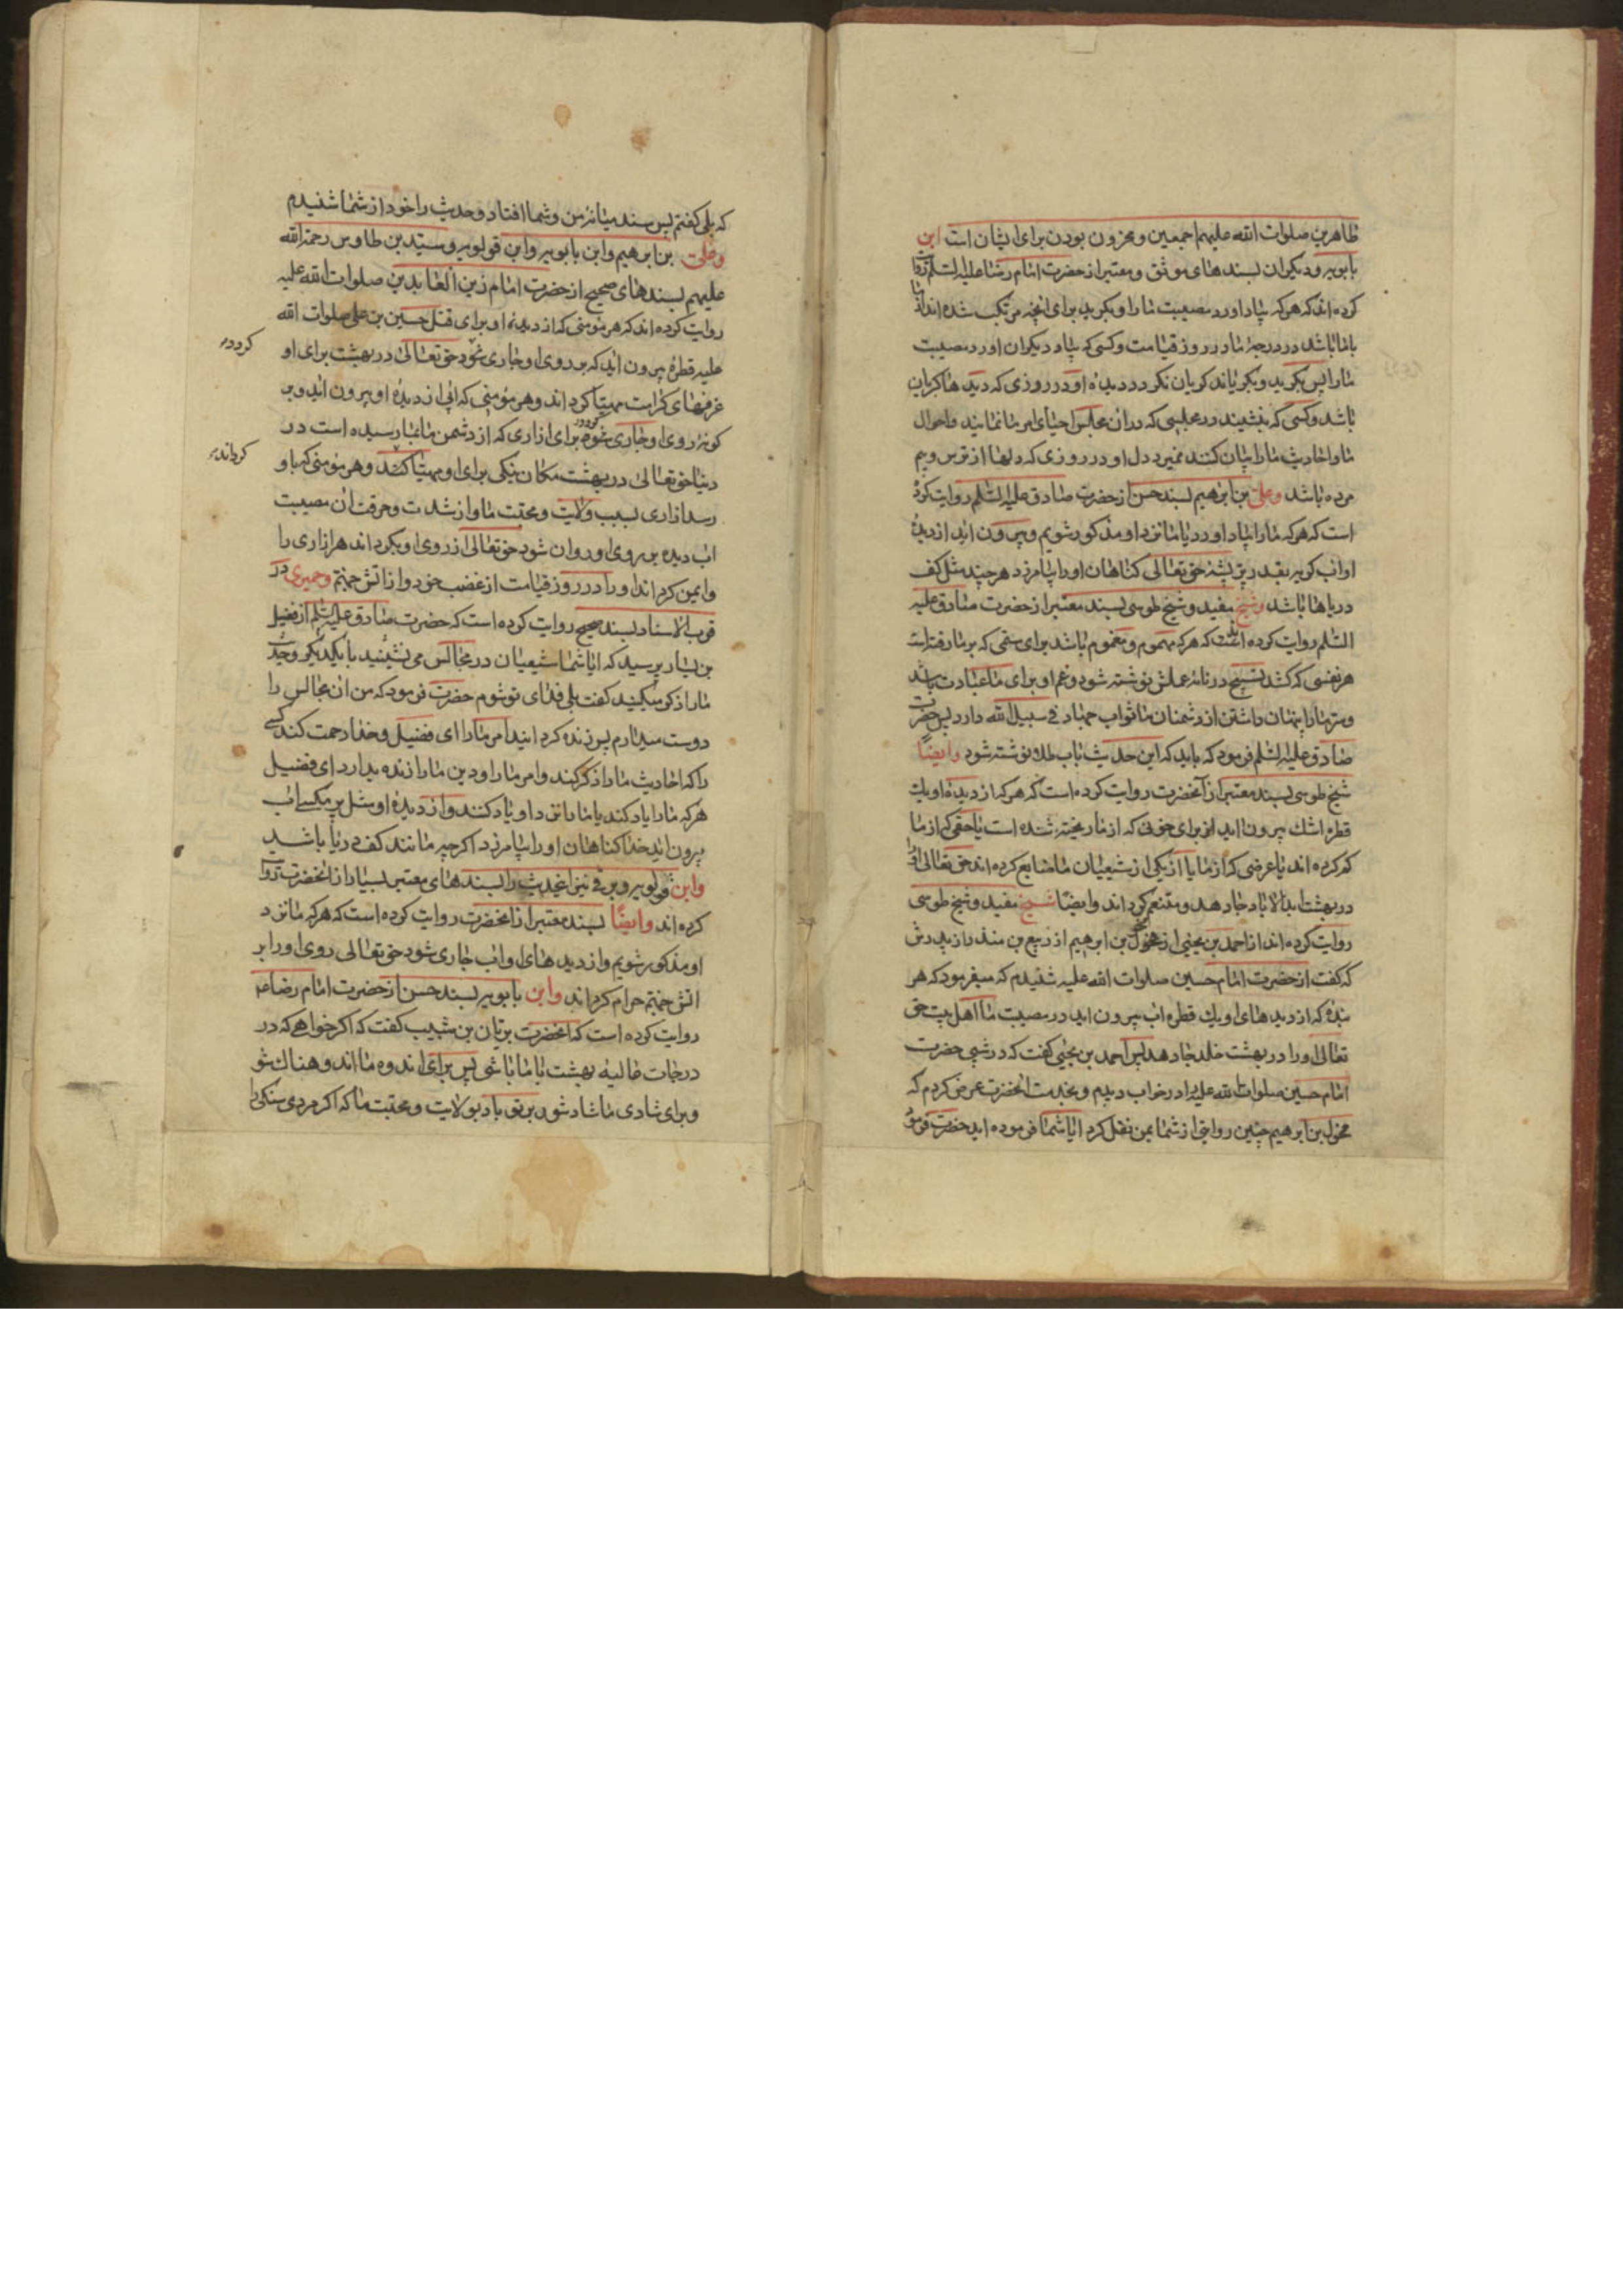 طاهرین صلوات الله علیهم اجمعین و محزون بودن برای ایشان است ابن
بابویه و دیکران بسندهای موثق و معتبر از حضرت امام رضا علیه السلم روایت
کرده اند که هرکه بیاد اورد مصیبت ما را و بکرید برای انچه مرتکب شده اند از ما
باما باشد در درجهٔ ما در روز قیامت و کسی که بیاد دیکران اورد مصیبت
ما را پس بکرید و بکریاند کریان نکردد دیدهٔ او در روزی که دیدها کریان
باشد و کسی که بنشیند در مجلسی که دران مجلس احیای امر ما نمایند و احوال
ما و احادیث ما را بیان کنند نمیرد دل او در روزی که دلها از ترس و بیم
مرده باشد و علی بن ابرهیم بسند حسن از حضرت صادق علیه السلم روایت کرده
است که هرکه ما را بیاد اورد یا ما نزد او مذکور شویم و بیرون اید از دیدهٔ
او اب کو بقدر پر پشهٔ حق تعالی کناهان او را بیامرزد هرچند مثل کف
دریاها باشد و شیخ مفید و شیخ طوسی بسند معتبر از حضرت صادق علیه
السلم روایت کرده است که هرکه مهموم و مغموم باشد برای ستمی که بر ما رفته است
هر نفسی که کشد تسبیح در نامهٔ عملش نوشته شود و غم او برای ما عبادت باشد
و سر ما را پنهان داشتن از دشمنان ما ثواب جهاد فی سبیل الله دارد پس حضرت
صادق علیه السلم فرمود که باید که این حدیث باب طلا نوشته شود وایضا
شیخ طوسی بسند معتبر از آنحضرت روایت کرده است که هرکه از دیدهٔ او یک
قطره اشک بیرون اید از برای خونی که از ما ریخته شده است یا حقی که از ما
کم کرده اند یا عرضی که از ما یا از یکی از شیعیان ما ضایع کرده اند حق تعالی او را
در بهشت ابد الاباد جا دهد و متنعم کرداند وایضا شیخ مفید و شیخ طوسی
روایت کرده اند از احمد بن یحیی از مخول بن ابرهیم از ربیع بن منذر از پدرش
که کفت از حضرت امام حسین صلوات الله علیه شنیدم که میفرمود که هر
بنده که از دیدهای او یک قطره اب بیرون اید در مصیبت ما اهل بیت حق
تعالی او را در بهشت خلد جا دهد پس احمد بن یحیی کفت که در شبی حضرت
امام حسین صلوات الله علیه را در خواب دیدم و بخدمت انحضرت عرض کردم که
مخول بن ابرهیم چنین روایتی از شما بمن نقل کرد ایا شما فرموده اید حضرت فرمود
که بلی کفتم پس سند میانهٔ من و شما افتاد و حدیث را خود از شما شنیدم
و علی بن ابرهیم و ابن بابویه و ابن قولویه و سید بن طاوس رحمة الله
علیهم بسندهای صحیح از حضرت امام زین العابدین صلوات الله علیه
روایت کرده اند که هر مؤمنی که از دیدهٔ او برای قتل حسین بن علی صلوات الله
علیه قطرهٔ بیرون اید که بر روی او جاری شود حق تعالی در بهشت برای او
کردد
غرفهای کرامت مهیا کرداند و هر مؤمنی که ابی از دیدهٔ او بیرون اید و بر
کونهٔ روی او جاری شود برای ازاری که از دشمن ما بما رسیده است در
دنیا حق تعالی در بهشت مکان نیکی برای او مهیا کند و هر مؤمنی که باو
کرداند
رسد ازاری بسبب ولایت و محبت ما و از شدت و حرقت ان مصیبت
اب دیده بر روی او روان شود حق تعالی از روی او بکرداند هر ازاری را
و ایمن کرداند او را در روز قیامت از غضب خود و از اتش جهنم و حمیری در
قرب الاسناد بسند صحیح روایت کرده است که حضرت صادق علیه السلم از فضیل
بن یسار پرسید که ایا شما شیعیان در مجالس می نشینید با یکدیکر و حدیث
ما را ذکر میکنید کفت بلی فدای تو شوم حضرت فرمود که من ان مجالس را
دوست میدارم پس زنده کردانید امر ما را ای فضیل و خدا رحمت کند کسی
را که احادیث ما را ذکر کند و امر ما را و دین ما را زنده بدارد ای فضیل
هرکه ما را یاد کند یا ما را نزد او یاد کنند و از دیدهٔ او مثل پر مکسی اب
بیرون اید خدا کناهان او را بیامرزد اکرچه مانند کف دریا باشد
و ابن قولویه و برقی نیز اینحدیث را بسندهای معتبر بسیار از انحضرت روایت
کرده اند وایضا بسند معتبر از انحضرت روایت کرده است که هرکه ما نزد
او مذکور شویم و از دیدهای او اب جاری شود حق تعالی روی او را بر
اتش جهنم حرام کرداند و ابن بابویه بسند حسن از حضرت امام رضا
روایت کرده است که انحضرت بریان بن شبیب کفت که اکر خواهی که در
درجات عالیهٔ بهشت با ما باشی پس برای اندوه ما اندوهناک شو
و برای شادی ما شاد شو و بر تو باد بولایت و محبت ما که اکر مردی سنکی را